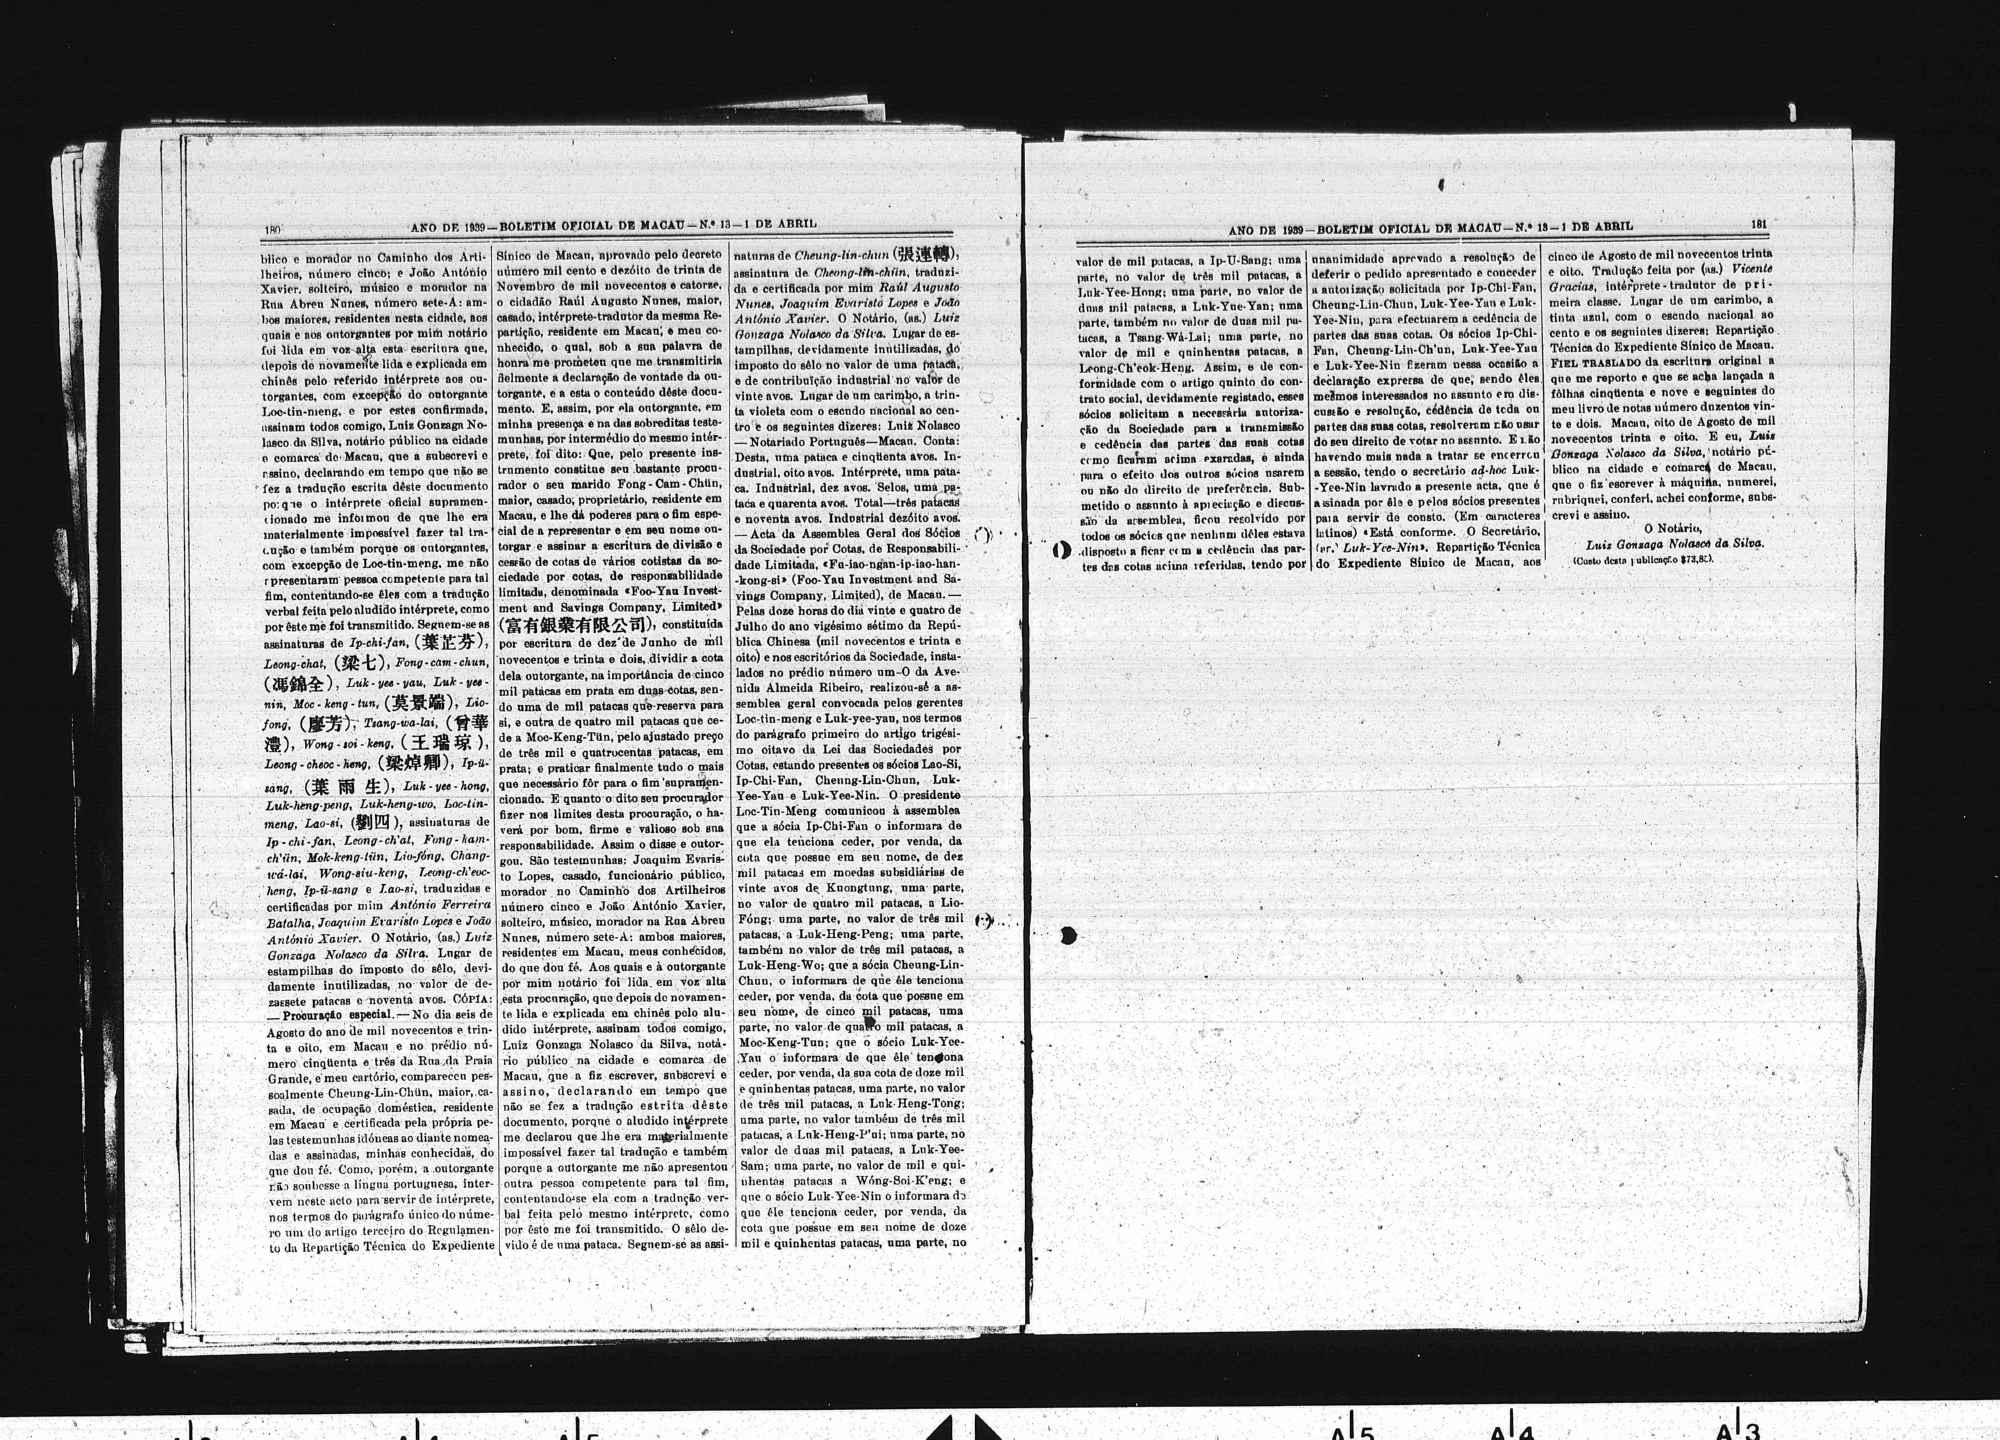 180
ANO DE 1939—BOLETIM OFICIAL DE MACAU—N.º 13—1 DE ABRIL
blico e morador no Caminho dos Arti-
lheiros, número cinco; e João António
Xavier, solteiro, músico e morador na
Rua Abreu Nunes, número sete-A: am-
bos maiores, residentes nesta cidade, aos
quais e aos outorgantes por mim notário
foi lida em voz alta esta escritura que,
depois de novamente lida e explicada em
chinês pelo referido intérprete aos ou-
torgantes, com excepção do outorgante
Loc-tin-meng, e por estes confirmada,
assinam todos comigo, Luiz Gonzaga No-
lasco da Silva, notário público na cidade
e comarca de Macau, que a subscrevi e
assino, declarando em tempo que não se
fez a tradução escrita dêste documento
porque o intérprete oficial supramen-
cionado me informou de que lhe era
materialmente impossível fazer tal tra-
dução e também porque os outorgantes,
com excepção de Loc-tin-meng, me não
apresentaram pessoa competente para tal
fim, contentando-se êles com a tradução
verbal feita pelo aludido intérprete, como
por êste me foi transmitido. Seguem-se as
assinaturas de Ip-chi-fan, (葉芷芬),
Leong-chat, (梁七), Fong-cam-chun,
(馮錦全), Luk-yee-yau, Luk-yee-
nin, Moc-keng-tun, (莫景端), Lio-
fong, (廖芳), Tsang-wa-lai, (曾華
澧), Wong-soi-keng, (王瑞琼),
Leong-cheoc-heng, (梁焯卿), Ip-ü-
sang, (葉雨生), Luk-yee-hong,
Luk-heng-peng, Luk-heng-wo, Loc-tin-
meng, Lao-si, (劉四), assinaturas de
Ip-chi-fan, Leong-ch'at, Fong-kam-
ch'ün, Mok-keng-tün, Lio-fóng, Chang-
wá-lai, Wong-siu-keng, Leong-ch'eoc-
heng, Ip-ü-sang e Lao-si, traduzidas e
certificadas por mim António Ferreira
Batalha, Joaquim Evaristo Lopes e João
António Xavier. O Notário, (as.) Luiz
Gonzaga Nolasco da Silva. Lugar de
estampilhas do imposto do sêlo, devi-
damente inutilizadas, no valor de de-
zassete patacas e noventa avos. CÓPIA:
— Procuração especial.— No dia seis de
Agosto do ano de mil novecentos e trin-
ta e oito, em Macau e no prédio nú-
mero cinqüenta e três da Rua da Praia
Grande, e meu cartório, compareceu pes-
soalmente Cheung-Lin-Chün, maior, ca-
sada, de ocupação doméstica, residente
em Macau e certificada pela própria pe-
las testemunhas idóneas ao diante nomea-
das e assinadas, minhas conhecidas, do
que dou fé. Como, porém, a outorgante
não soubesse a língua portuguesa, inter-
vem neste acto para servir de intérprete,
nos termos do parágrafo único do núme-
ro um do artigo terceiro do Regulamen-
to da Repartição Técnica do Expediente
Sínico de Macau, aprovado pelo decreto
número mil cento e dezóito de trinta de
Novembro de mil novecentos e catorze,
o cidadão Raúl Augusto Nunes, maior,
casado, intérprete-tradutor da mesma Re-
partição, residente em Macau, e meu co-
nhecido, o qual, sob a sua palavra de
honra me prometeu que me transmitiria
fielmente a declaração de vontade da ou-
torgante, e a esta o conteúdo dêste docu-
mento. E, assim, por ela outorgante, em
minha presença e na das sobreditas teste-
munhas, por intermédio do mesmo intér-
prete, foi dito: Que, pelo presente ins-
trumento constitue seu bastante procu-
rador o seu marido Fong-Cam-Chün,
maior, casado, proprietário, residente em
Macau, e lhe dá poderes para o fim espe-
cial de a representar e em seu nome ou-
torgar e assinar a escritura de divisão e
cessão de cotas de vários cotistas da so-
ciedade por cotas, de responsabilidade
limitada, denominada «Foo-Yau Invest-
ment and Savings Company, Limited»
(富有銀業有限公司), constituída
por escritura de dez de Junho de mil
novecentos e trinta e dois, dividir a cota
dela outorgante, na importância de cinco
mil patacas em prata em duas cotas, sen-
do uma de mil patacas que reserva para
si, e outra de quatro mil patacas que ce-
de a Moc-Keng-Tün, pelo ajustado preço
de três mil e quatrocentas patacas, em
prata; e praticar finalmente tudo o mais
que necessário fôr para o fim supramen-
cionado. E quanto o dito seu procurador
fizer nos limites desta procuração, o ha-
verá por bom, firme e valioso sob sua
responsabilidade. Assim o disse e outor-
gou. São testemunhas: Joaquim Evaris-
to Lopes, casado, funcionário público,
morador no Caminho dos Artilheiros
número cinco e João António Xavier,
solteiro, músico, morador na Rua Abreu
Nunes, número sete-A: ambos maiores,
residentes em Macau, meus conhecidos,
do que dou fé. Aos quais e à outorgante
por mim notário foi lida em voz alta
esta procuração, que depois de novamen-
te lida e explicada em chinês pelo alu-
dido intérprete, assinam todos comigo,
Luiz Gonzaga Nolasco da Silva, notá-
rio público na cidade e comarca de
Macau, que a fiz escrever, subscrevi e
assino, declarando em tempo que
não se fez a tradução estrita dêste
documento, porque o aludido intérprete
me declarou que lhe era materialmente
impossível fazer tal tradução e também
porque a outorgante me não apresentou
outra pessoa competente para tal fim,
contentando-se ela com a tradução ver-
bal feita pelo mesmo intérprete, como
por êste me foi transmitido. O sêlo de-
vido é de uma pataca. Seguem-se as assi-
naturas de Cheung-lin-chun (張連轉),
assinatura de Cheong-lin-chün, traduzi-
da e certificada por mim Raúl Augusto
Nunes, Joaquim Evaristo Lopes e João
António Xavier. O Notário, (as.) Luiz
Gonzaga Nolasco da Silva. Lugar de es-
tampilhas, devidamente inutilizadas, do
imposto do sêlo no valor de uma pataca,
e de contribuïção industrial no valor de
vinte avos. Lugar de um carimbo, a tin-
ta violeta com o escudo nacional ao cen-
tro e os seguintes dizeres: Luiz Nolasco
— Notariado Português—Macau. Conta:
Desta, uma pataca e cinqüenta avos. In-
dustrial, oito avos. Intérprete, uma pata-
ca. Industrial, dez avos. Selos, uma pa-
taca e quarenta avos. Total—três patacas
e noventa avos. Industrial dezóito avos.
— Acta da Assemblea Geral dos Sócios
da Sociedade por Cotas, de Responsabili-
dade Limitada, «Fu-iao-ngan-ip-iao-han-
-kong-si» (Foo-Yau Investment and Sa-
vings Company, Limited), de Macau.—
Pelas doze horas do dia vinte e quatro de
Julho do ano vigésimo sétimo da Repú-
blica Chinesa (mil novecentos e trinta e
oito) e nos escritórios da Sociedade, insta-
lados no prédio número um-O da Ave-
nida Almeida Ribeiro, realizou-se a as-
semblea geral convocada pelos gerentes
Loc-tin-meng e Luk-yee-yau, nos termos
do parágrafo primeiro do artigo trigési-
mo oitavo da Lei das Sociedades por
Cotas, estando presentes os sócios Lao-Si,
Ip-Chi-Fan, Cheung-Lin-Chun, Luk-
Yee-Yau e Luk-Yee-Nin. O presidente
Loc-Tin-Meng comunicou à assemblea
que a sócia Ip-Chi-Fan o informara de
que ela tenciona ceder, por venda, da
cota que possue em seu nome, de dez
mil patacas em moedas subsidiárias de
vinte avos de Kuongtung, uma parte,
no valor de quatro mil patacas, a Lio-
Fóng; uma parte, no valor de três mil
patacas, a Luk-Heng-Peng; uma parte,
também no valor de três mil patacas, a
Luk-Heng-Wo; que a sócia Cheung-Lin-
Chun, o informara de que êle tenciona
ceder, por venda, da cota que possue em
seu nome, de cinco mil patacas, uma
parte, no valor de quatro mil patacas, a
Moc-Keng-Tun; que o sócio Luk-Yee-
Yau o informara de que êle tenciona
ceder, por venda, da sua cota de doze mil
e quinhentas patacas, uma parte, no valor
de três mil patacas, a Luk-Heng-Tong;
uma parte, no valor também de três mil
patacas, a Luk-Heng-P'ui; uma parte, no
valor de duas mil patacas, a Luk-Yee-
Sam; uma parte, no valor de mil e qui-
nhentas patacas a Wóng-Soi-K'eng; e
que o sócio Luk-Yee-Nin o informara de
que êle tenciona ceder, por venda, da
cota que possue em seu nome de doze
mil e quinhentas patacas, uma parte, no
ANO DE 1939—BOLETIM OFICIAL DE MACAU—N.º 13—1 DE ABRIL
181
valor de mil patacas, a Ip-U-Sang; uma
parte, no valor de três mil patacas, a
Luk-Yee-Hong; uma parte, no valor de
duas mil patacas, a Luk-Yue-Yan; uma
parte, também no valor de duas mil pa-
tacas, a Tsang-Wá-Lai; uma parte, no
valor de mil e quinhentas patacas, a
Leong-Ch'eok-Heng. Assim, e de con-
formidade com o artigo quinto do con-
trato social, devidamente registado, esses
sócios solicitam a necessária autoriza-
ção da Sociedade para a transmissão
e cedência das partes das suas cotas
como ficaram acima exaradas, e ainda
para o efeito dos outros sócios usarem
ou não do direito de preferência. Sub-
metido o assunto à apreciação e discus-
são da assemblea, ficou resolvido por
todos os sócios que nenhum dêles estava
disposto a ficar com a cedência das par-
tes das cotas acima referidas, tendo por
unanimidade aprovado a resolução de
deferir o pedido apresentado e conceder
a autorização solicitada por Ip-Chi-Fan,
Cheung-Lin-Chun, Luk-Yee-Yau e Luk-
Yee-Nin, para efectuarem a cedência de
partes das suas cotas. Os sócios Ip-Chi-
Fan, Cheung-Lin-Ch'un, Luk-Yee-Yau
e Luk-Yee-Nin fizeram nessa ocasião a
declaração expressa de que, sendo êles
mesmos interessados no assunto em dis-
cussão e resolução, cedência de toda ou
partes das suas cotas, resolveram não usar
do seu direito de votar no assunto. E não
havendo mais nada a tratar se encerrou
a sessão, tendo o secretário ad-hoc Luk-
-Yee-Nin lavrado a presente acta, que é
assinada por êle e pelos sócios presentes
para servir de consto. (Em caracteres
latinos) «Está conforme. O Secretário,
Luk-Yee-Nin». Repartição Técnica
do Expediente Sínico de Macau, aos
cinco de Agosto de mil novecentos trinta
e oito. Tradução feita por (as.) Vicente
Gracias, intérprete-tradutor de pri-
meira classe. Lugar de um carimbo, a
tinta azul, com o escudo nacional ao
cento e os seguintes dizeres: Repartição
Técnica do Expediente Sínico de Macau.
FIEL TRASLADO da escritura original a
que me reporto e que se acha lançada a
fôlhas cinqüenta e nove e seguintes do
meu livro de notas número duzentos vin-
te e dois. Macau, oito de Agosto de mil
novecentos trinta e oito. E eu, Luiz
Gonzaga Nolasco da Silva, notário pú-
blico na cidade e comarca de Macau,
que o fiz escrever à máquina, numerei,
rubriquei, conferi, achei conforme, subs-
crevi e assino.
O Notário,
Luiz Gonzaga Nolasco da Silva.
(Custo desta publicação $73,80).
A 5
A 4
A 3